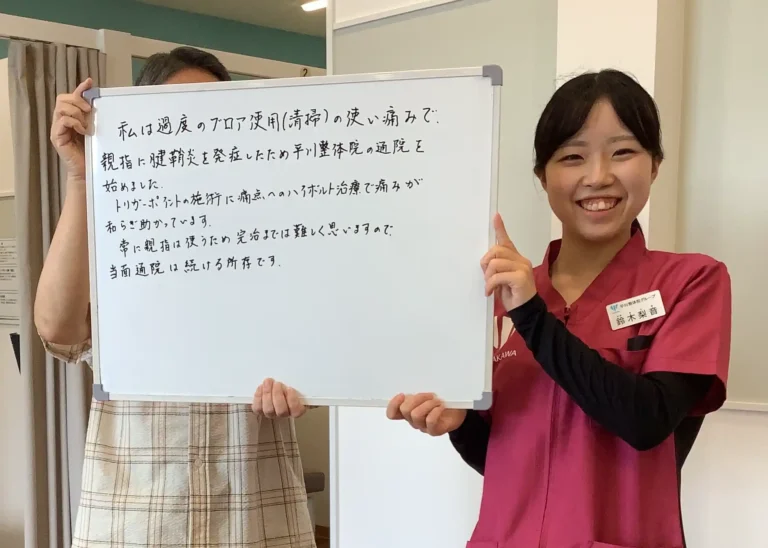 私は過度のブロア使用(清掃)の使い痛みで、
親指に腱鞘炎を発症したため平川整体院の通院を
始めました。
トリガーポイントの施術に痛点へのハイボルト治療で痛みが
和らぎ助かっています。
常に親指は使うため完治までは難しく思いますので、
当面通院は続ける所存です。
平川整体院グループ
鈴木梨音
AKAWA
2